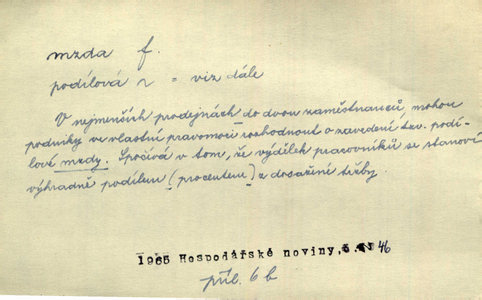 mzda f.
podílová ~ = viz dále
V nejmenších prodejnách do dvou zaměstnanců mohou
podniky ve vlastní pravomoci rozhodnout o zavedení tzv. podí-
lové mzdy. Spočívá v tom, že výdělek pracovníků se stanoví
výhradně podílem (procentem) z dosažené tržby.
1965 Hospodářské noviny, č. 46
příl. 6 b